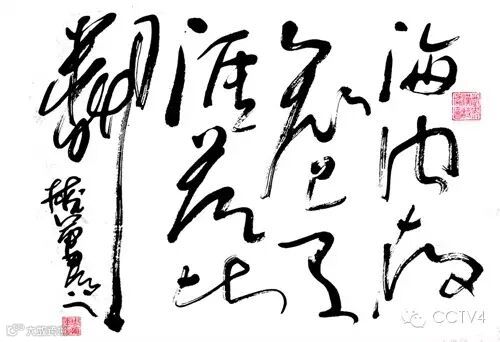 海内存
知己天
涯若比
鄰
CCTV4